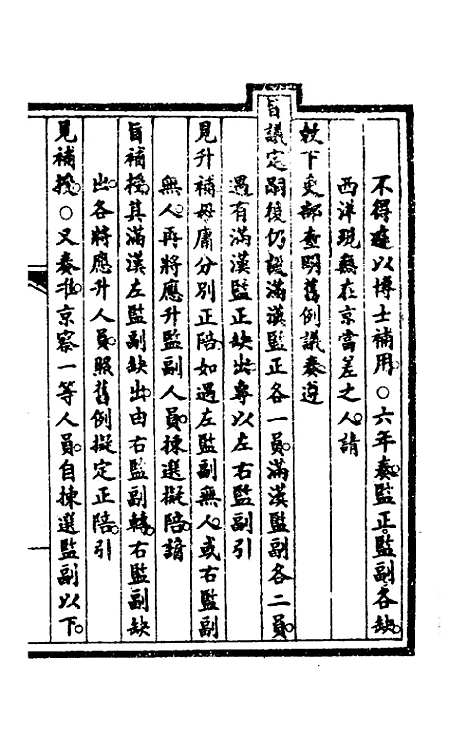 不得遽以博士補用○六年奏監正監副各缺
西洋現無在京當差之人請
敕下吏部查明舊例議奏遵
旨議定嗣後仍設滿漢監正各一員滿漢監副各二員
遇有滿漢監正缺出專以左右監副引
見升補毋庸分別正陪如遇左監副無人或右監副
無人再將應升監副人員揀選擬陪請
旨補授其滿漢左監副缺出由右監副轉右監副缺
出各將應升人員照舊例擬定正陪引
見補授○又奏准京察一等人員自揀選監副以下